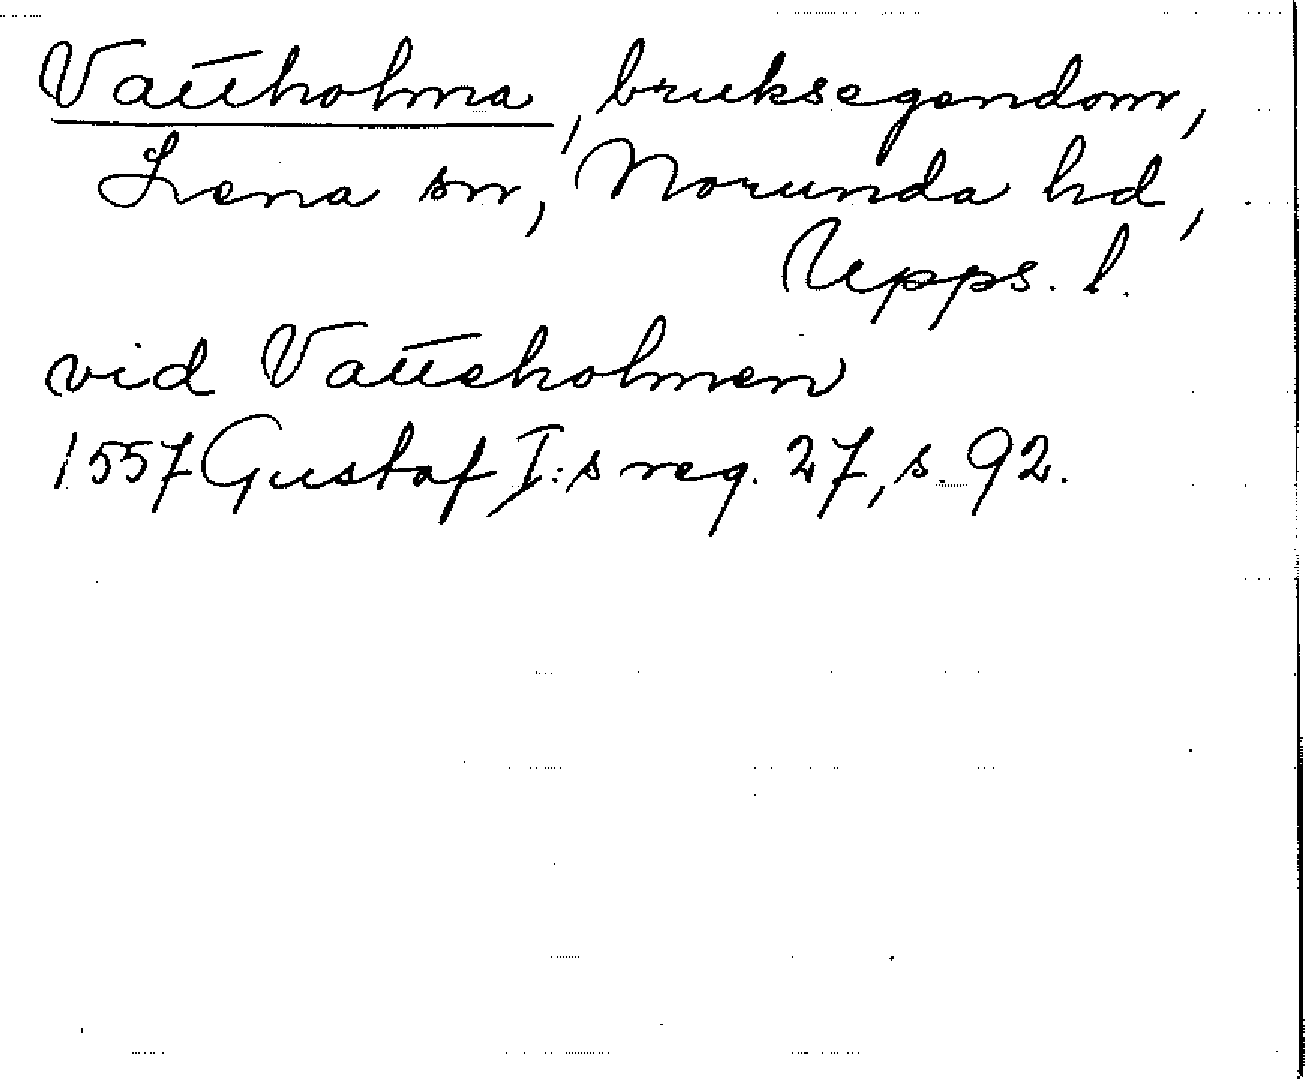 Vattholma, bruksegendom,
Lena sn, Norunda hd,
Upps. l.
vid Vatteholmen
1557 Gustaf I:s reg. 27, s. 92.